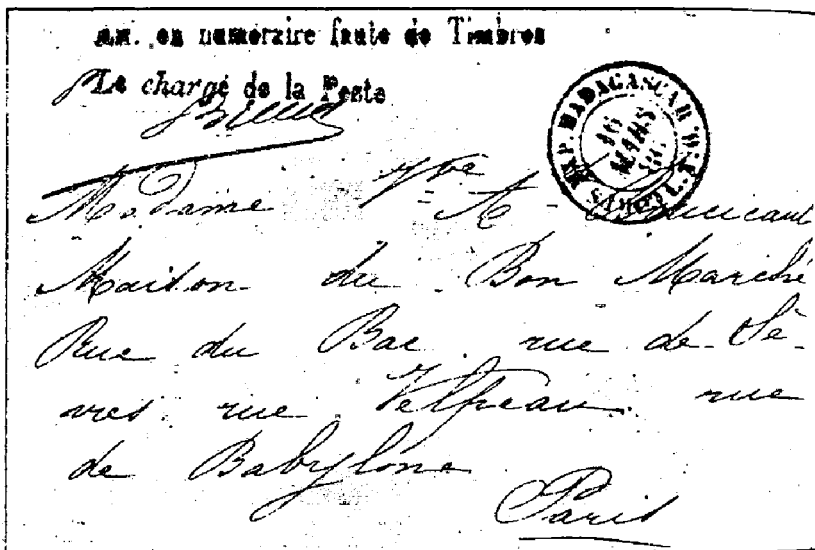 en numerzire faute de Timbres
Le chargé de la Poste
MADAGASCAR
16
MARS
Madame Vve A Boucicaut
Maison du Bon Marché
Rue du Bac rue de Sè-
vres rue Velpeau rue
de Babylone
Paris